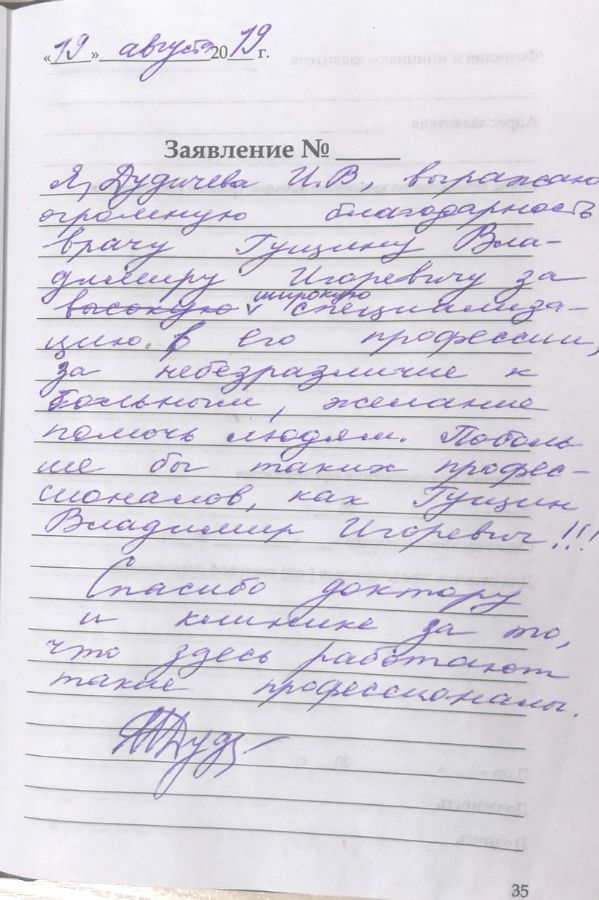 «19» августа 2019 г.
Заявление № ____
Я, Дудичева И.В., выражаю
огромную благодарность
врачу Гущину Вла-
димиру Игоревичу за
широкую
высокую специализа-
цию в его профессии,
за небезразличие к
больным, желание
помочь людям. Поболь
ше бы таких профес-
сионалов, как Гущин
Владимир Игоревич!!!
Спасибо доктору
и клинике за то,
что здесь работают
такие профессионалы.
35